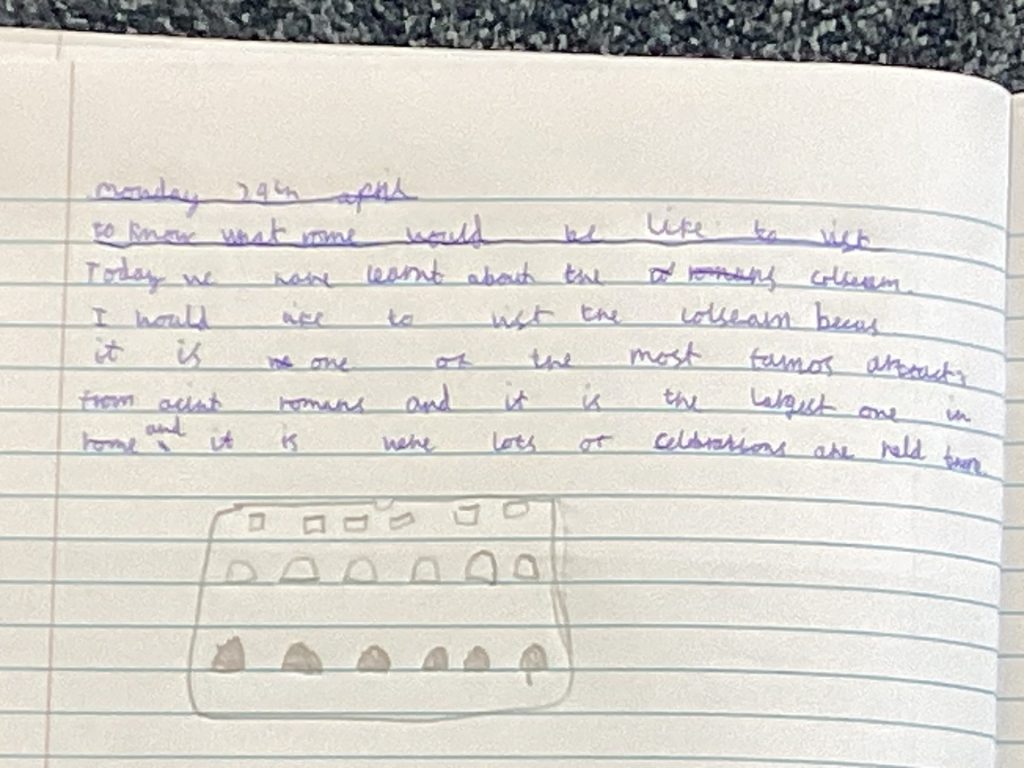 monday 29th april
to know what rome would be like to visit
Today we have learnt about the colseam.
I would like to visit the colseam becus
it is one of the most famos attracts
from acint romans and it is the largest one in
rome and it is were lots of celebrations are held there.